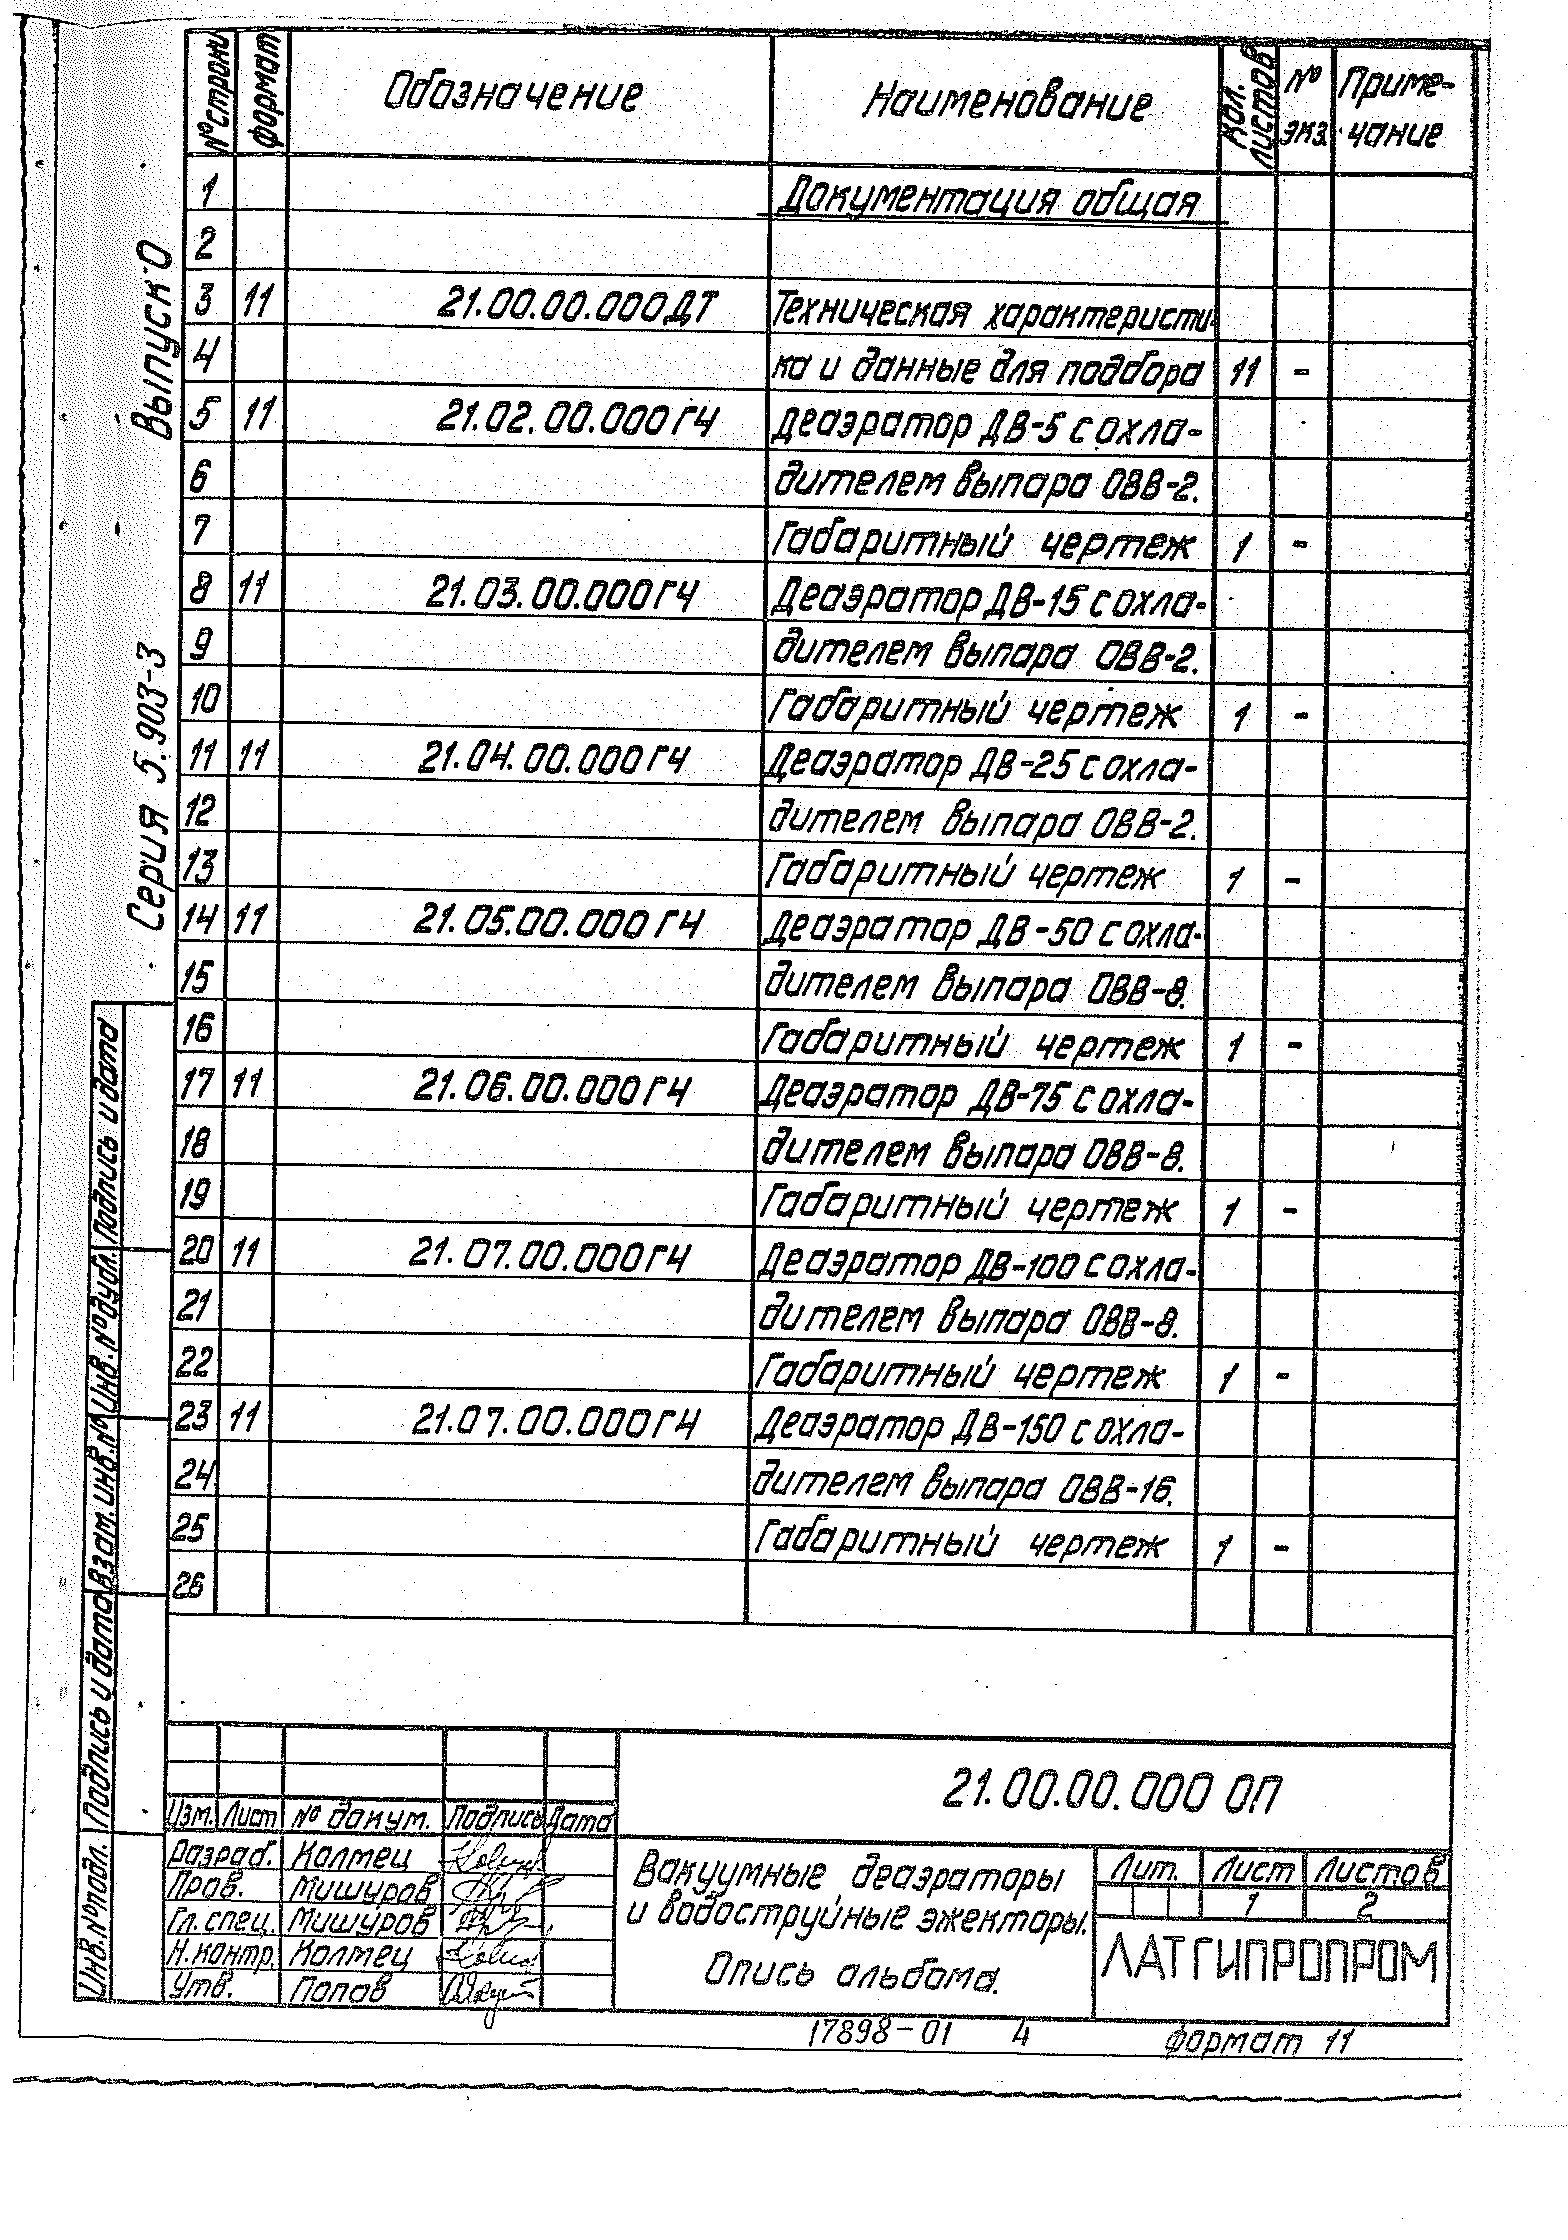 № строки формат Обозначение Наименование Кол. листов № экз. Приме-
чание
1 Документация общая
2
3 11 21.00.00.000ДТ Техническая характеристи-
4 ка и данные для подбора 11 -
5 11 21.02.00.000ГЧ Деаэратор ДВ-5 с охла-
6 дителем выпара ОВВ-2.
7 Габаритный чертеж 1 -
8 11 21.03.00.000ГЧ Деаэратор ДВ-15 с охла-
9 дителем выпара ОВВ-2.
10 Габаритный чертеж 1 -
11 11 21.04.00.000ГЧ Деаэратор ДВ-25 с охла-
12 дителем выпара ОВВ-2.
13 Габаритный чертеж 1 -
14 11 21.05.00.000ГЧ Деаэратор ДВ-50 с охла-
15 дителем выпара ОВВ-8.
16 Габаритный чертеж 1 -
17 11 21.06.00.000ГЧ Деаэратор ДВ-75 с охла-
18 дителем выпара ОВВ-8.
19 Габаритный чертеж 1 -
20 11 21.07.00.000ГЧ Деаэратор ДВ-100 с охла-
21 дителем выпара ОВВ-8.
22 Габаритный чертеж 1 -
23 11 21.07.00.000ГЧ Деаэратор ДВ-150 с охла-
24 дителем выпара ОВВ-16.
25 Габаритный чертеж 1 -
26
Серия 5.903-3 Выпуск 0
Инв.№подл. Подпись и дата Взам.инв.№ Инв.№дубл. Подпись и дата
21.00.00.000 ОП
Изм. Лист № докум. Подпись Дата
Разраб. Колтец
Пров. Мишуров
Гл.спец. Мишуров
Н.контр. Колтец
Утв. Попов
Вакуумные деаэраторы
и водоструйные эжекторы.
Опись альбома.
Лит. Лист Листов
1 2
ЛАТГИПРОПРОМ
17898-01 4 формат 11